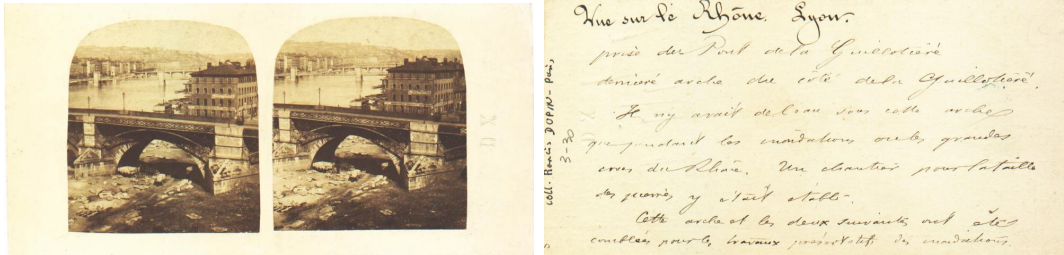 Vue sur le Rhône. Lyon.
prise du Pont de la Guillotière
dernière arche du côté de la Guillotière.
Il n'y avait de l'eau sous cette arche
que pendant les inondations ou les grandes
crues du Rhône. Un chantier pour la taille
des pierres y était établi.
Cette arche et les deux suivantes ont été
comblées pour les travaux préservatifs des inondations.
coll. DOPIN - Paris,
3-30